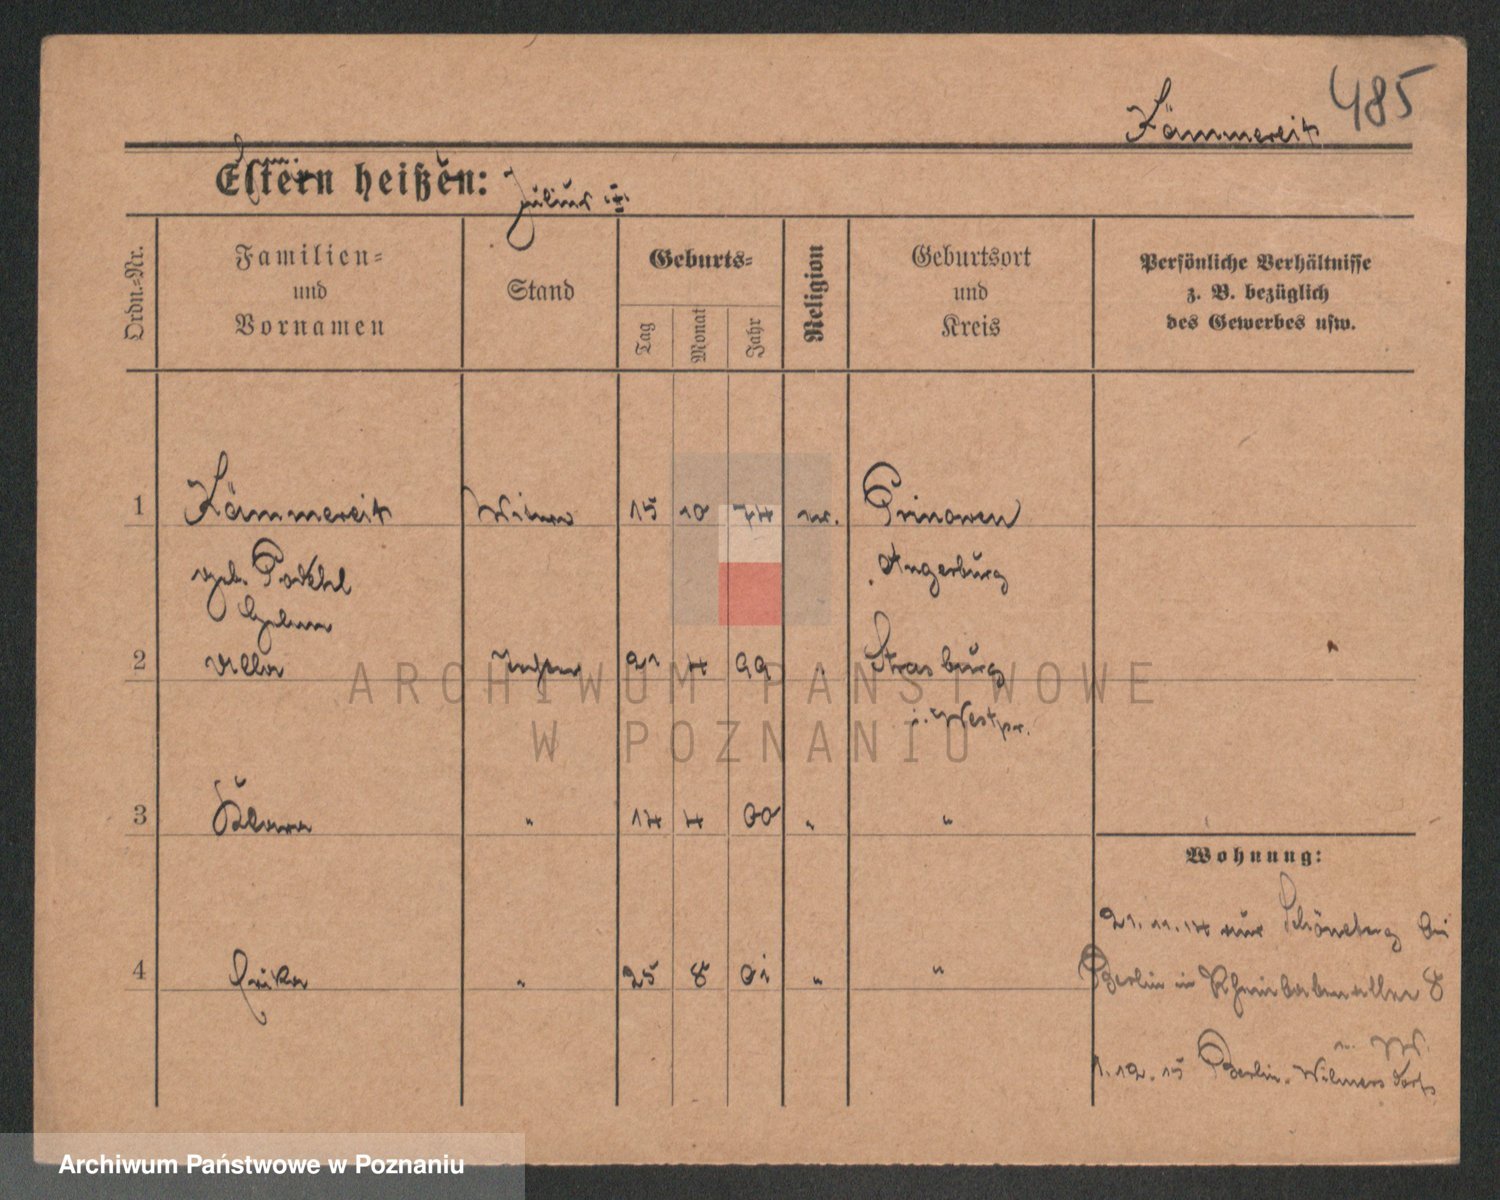 485
Kämmereit
Eltern heißen:
Julius
Ordn.-Nr.
Familien=
und
Vornamen
Stand
Geburts=
Tag
Monat
Jahr
Religion
Geburtsort
und
Kreis
Persönliche Verhältnisse
z. B. bezüglich
des Gewerbes usw.
1 Kämmereit Witwe 15 10 74 ev. Prinowen
geb. Angerburg
2 Tochter 21 4 99 " Strasburg
i. Westpr.
3 Klara " 14 4 00 " "
Wohnung:
21.11.14 Schöneberg bei
4 Erika " 25 8 01 " "
Berlin in 8
1.12.15 Berlin-Wilmersdorf
ARCHIWUM PAŃSTWOWE
W POZNANIU
Archiwum Państwowe w Poznaniu